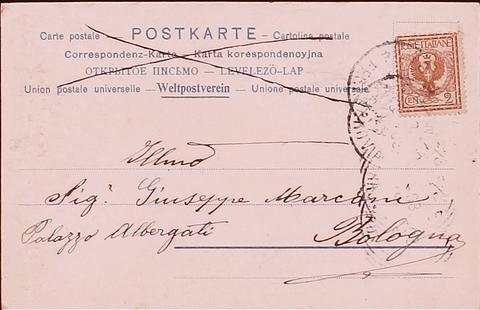 Carte postale – POSTKARTE – Cartolina postale
Correspondenz-Karta – Karta korespondenoyjna
ОТКРЫТОЕ ПИСЬМО – LEVELEZÖ-LAP
Union postale universelle – Weltpostverein – Unione postale universale
POSTE ITALIANE
CENT. 2
Illmo
Sigr Giuseppe Marconi
Palazzo Albergati Bologna